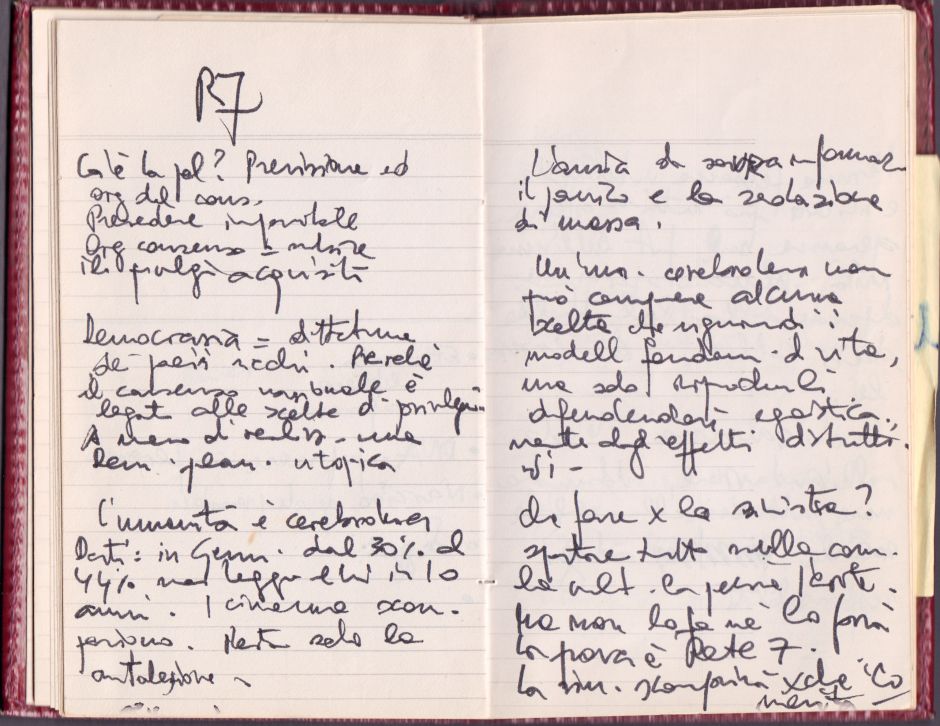 R7
Cos'è la pol? Previsione ed
org del cons.
Prevedere impossibile
Org consenso =
i privilegi acquisiti
Democrazia = dittatura
dei paesi ricchi. Perché
il consenso nazionale è
legato alle scelte di privilegio
A meno di realizz. una
Dem. plan. utopica
L'umanità è cerebrolesa
Dati: in Germ. dal 30% al
44% non legge libri in 10
anni. I cinema scom-
paiono. Resta solo la
L'ansia di informaz
il panico e la
di massa.
Un'uma. cerebrolesa non
può compiere alcuna
scelta che riguardi i
modelli fondam. di vita,
ma solo riprodurli
difendendosi egoistica-
mente dagli effetti distrutti-
vi -
che fare x la sinistra?
spostare tutto sulla com.
la cult. la
Ma non lo fa nè lo farà
la prova è Rete 7.
la sin. scomparirà xchè "Co